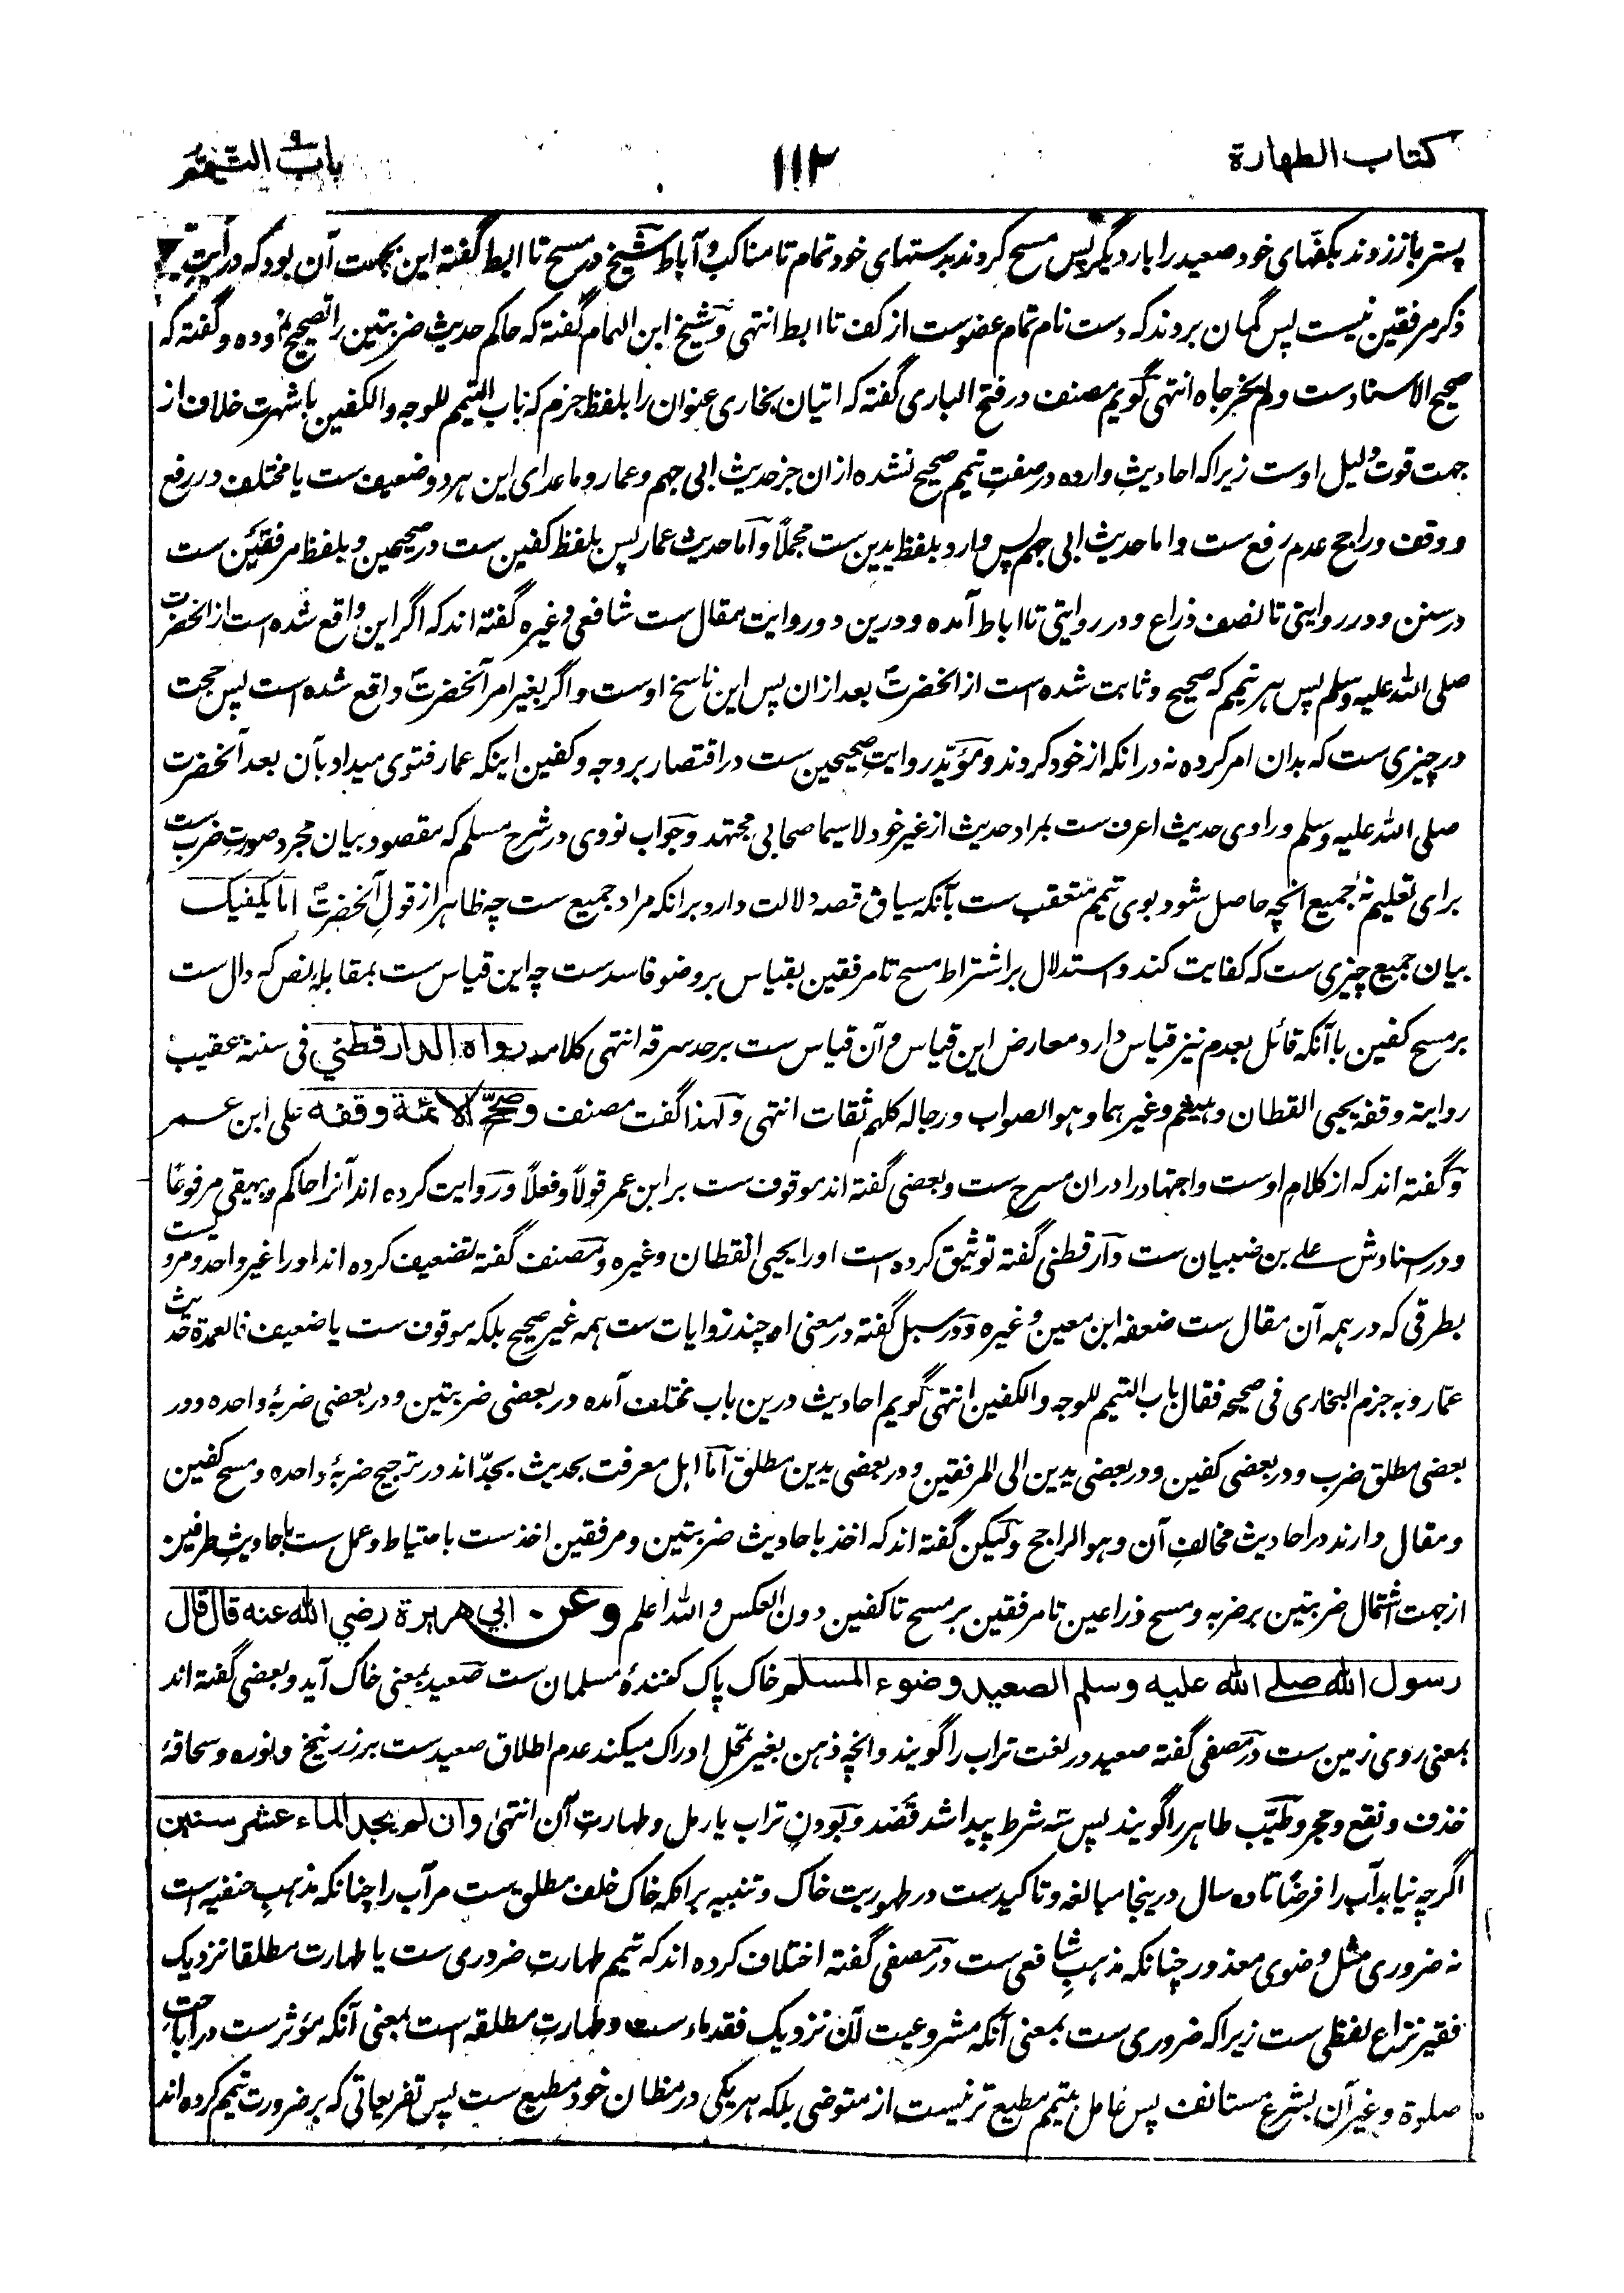 کتاب الطهارة
۱۱۲
باب التیمم
پستر باز زدند بکفهای خود صعید را بار دیگر پس مسح کردند بدستهای خود تمام تا مناکب و آباط شیخ در مسح تا ابط گفته این بجهت آن بود که در آیت
ذکر مرفقین نیست پس گمان بردند که دست نام تمام عضوست از کف تا ابط انتهی و شیخ ابن الهمام گفته که حاکم حدیث ضربتین را تصحیح نموده و گفته که
صحیح الاسنادست و لم یخرجاه انتهی گویم مصنف در فتح الباری گفته که اتیان بخاری عنوان را بلفظ جزم که باب التیمم للوجه والکفین با شهرت خلاف از
جهت قوت دلیل اوست زیرا که احادیث وارده در صفت تیمم صحیح نشده ازان جز حدیث ابی جهم و عمار و ماعدای این هر دو ضعیف ست یا مختلف در رفع
و وقف و راجح عدم رفع ست و اما حدیث ابی جهم پس وارد بلفظ یدین ست مجملاً و اما حدیث عمار پس بلفظ کفین ست در صحیحین و بلفظ مرفقین ست
در سنن و در روایتی تا نصف ذراع و در روایتی تا اباط آمده و درین دو روایت مقال ست شافعی و غیره گفته اند که اگر این واقع شده است از آنحضرت
صلی الله علیه وسلم پس هر تیمم که صحیح و ثابت شده است از آنحضرت بعد ازان پس این ناسخ اوست و اگر بغیر امر آنحضرت واقع شده است پس حجت
در چیزی ست که بدان امر کرده نه در آنکه از خود کردند و مؤید روایت صحیحین ست در اقتصار بر وجه و کفین اینکه عمار فتوی میداد بآن بعد آنحضرت
صلی الله علیه وسلم و راوی حدیث اعرف ست بمراد حدیث از غیر خود لاسیما صحابی مجتهد و جواب نووی در شرح مسلم که مقصود بیان مجرد صورت ضرب ست
برای تعلیم نه جمیع انچه حاصل شود بوی تیمم متعقب ست بآنکه سیاق قصه دلالت دارد برانکه مراد جمیع ست چه ظاهر از قول آنحضرت اما یکفیک
بیان جمیع چیزی ست که کفایت کند و استدلال بر اشتراط مسح تا مرفقین بقیاس بر وضو فاسد ست چه این قیاس ست بمقابله نص که دال ست
بر مسح کفین با آنکه قائل بعدم نیز قیاس دارد معارض این قیاس و آن قیاس ست بر حد سرقه انتهی کلامه رواه الدارقطني فی سننه عقیب
روایة وقفه یحیی القطان و هشیم و غیرهما و هو الصواب و رجاله کلهم ثقات انتهی و لهذا گفت مصنف وصحح الائمة وقفه علی ابن عمر
و گفته اند که از کلام اوست و اجتهاد را دران مسرح ست و بعضی گفته اند موقوف ست بر ابن عمر قولاً و فعلاً و روایت کرده اند آنرا حاکم و بیهقی مرفوعًا
و در سنادش علی بن ضبیان ست دارقطنی گفته توثیق کرده است اورا یحیی القطان و غیره و مصنف گفته تضعیف کرده اند اورا غیر واحد و مرویست
بطرقی که در همه آن مقال ست ضعفه ابن معین و غیره و در سبل گفته در معنی او چند روایات ست همه غیر صحیح بلکه موقوف ست یا ضعیف فالعمدة حدیث
عمار و به جزم البخاری فی صحیحه فقال باب التیمم للوجه والکفین انتهی گویم احادیث درین باب مختلف آمده در بعضی ضربتین و در بعضی ضربهٔ واحده و در
بعضی مطلق ضرب و در بعضی کفین و در بعضی یدین الی المرفقین و در بعضی یدین مطلق اما اهل معرفت بحدیث بجدّ اند در ترجیح ضربهٔ واحده و مسح کفین
و مقال دارند در احادیث مخالف آن و هو الراجح و لیکن گفته اند که اخذ باحادیث ضربتین و مرفقین اخذ ست باحتیاط و عمل ست باحادیث طرفین
از جهت اشتمال ضربتین بر ضربه و مسح ذراعین تا مرفقین بر مسح تا کفین دون العکس و الله اعلم وعن ابي هريرة رضي الله عنه قال قال
رسول الله صلى الله عليه وسلم الصعيد وضوء المسلم خاک پاک کنندهٔ مسلمان ست صعید بمعنی خاک آید و بعضی گفته اند
بمعنی روی زمین ست در مصفی گفته صعید در لغت تراب را گویند و انچه ذهن بغیر تمحل ادراک میکند عدم اطلاق صعید ست بر زرنیخ و نوره و سحاقهٔ
خذف و نقع و حجر و طیّب طاهر را گویند پس سه شرط پیدا شد قصد و بودن تراب یا رمل و طهارت آن انتهی وان لم يجد الماء عشر سنين
اگرچه نیابد آب را فرضًا تا ده سال درینجا مبالغه و تاکیدست در طهوریت خاک و تنبیه برانکه خاک خلف مطلق ست مر آب را چنانکه مذهب حنفیه است
نه ضروری مثل وضوی معذور چنانکه مذهب شافعی ست در مصفی گفته اختلاف کرده اند که تیمم طهارت ضروری ست یا طهارت مطلقا نزدیک
فقیر نزاع لفظی ست زیرا که ضروری ست بمعنی آنکه مشروعیت آن نزدیک فقد ماء ست و طهارت مطلقه است بمعنی آنکه مؤثر ست در اباحت
صلوة و غیر آن بشرع مستانف پس عامل بتیمم مطیع تر نیست از متوضی بلکه هر یکی در مظان خود مطیع ست پس تفریعاتی که بر ضرورت تیمم کرده اند